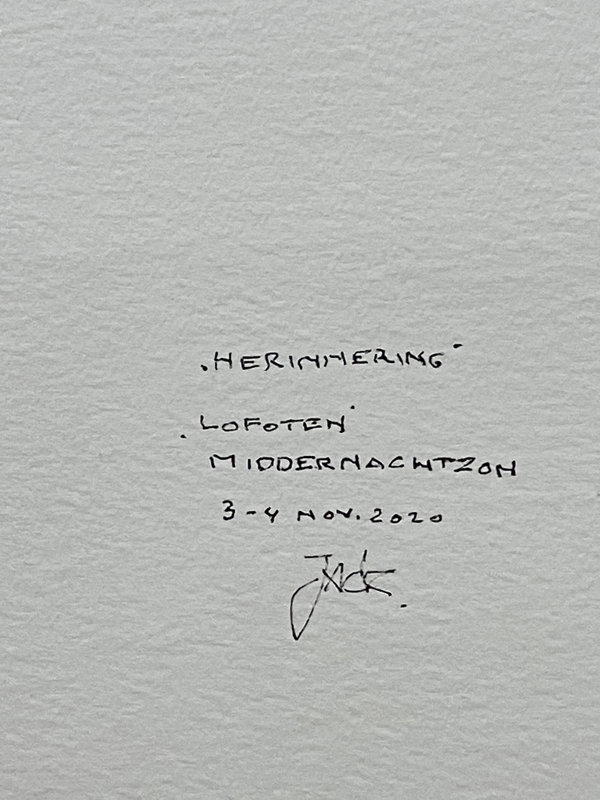 'HERINNERING'
'LOFOTEN'
MIDDERNACHTZON
3-4 NOV. 2020
Jack.